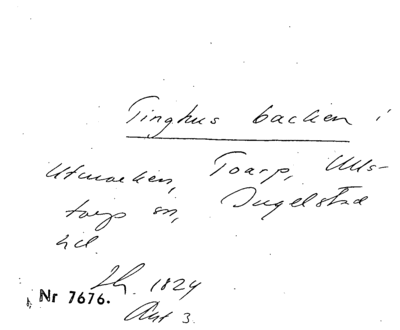 Tinghus backen i
Utmarken, Toarp, Ulls-
torp sn, Ingelstad
hd.
Lh. 1824
Akt 3.
Nr 7676.